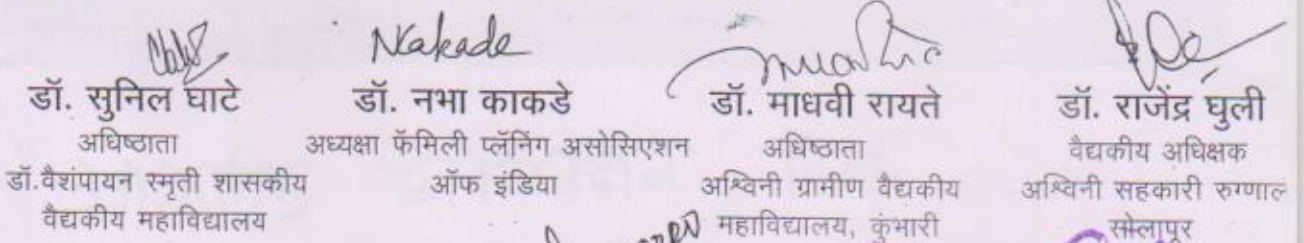 Nakade
डॉ. सुनिल घाटे
अधिष्ठाता
डॉ.वैशंपायन स्मृती शासकीय
वैद्यकीय महाविद्यालय
डॉ. नभा काकडे
अध्यक्षा फॅमिली प्लॅनिंग असोसिएशन
ऑफ इंडिया
डॉ. माधवी रायते
अधिष्ठाता
अश्विनी ग्रामीण वैद्यकीय
महाविद्यालय, कुंभारी
डॉ. राजेंद्र घुली
वैद्यकीय अधिक्षक
अश्विनी सहकारी रुग्णाल
सोलापूर